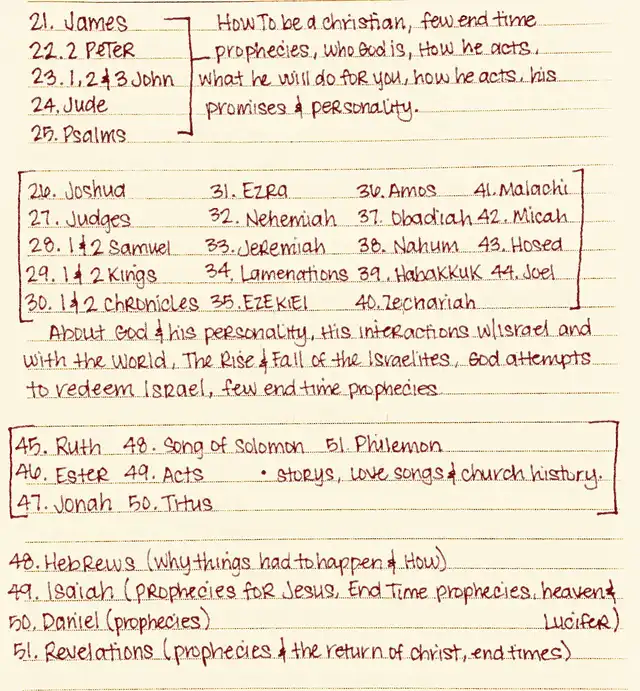 21. James
22. 2 Peter
23. 1, 2 & 3 John
24. Jude
25. Psalms
How To be a christian, few end time
prophecies, who God is, How he acts,
what he will do for you, how he acts, his
promises & personality.
26. Joshua 31. Ezra 36. Amos 41. Malachi
27. Judges 32. Nehemiah 37. Obadiah 42. Micah
28. 1 & 2 Samuel 33. Jeremiah 38. Nahum 43. Hosea
29. 1 & 2 Kings 34. Lamenations 39. Habakkuk 44. Joel
30. 1 & 2 Chronicles 35. Ezekiel 40. Zechariah
About God & his personality, His interactions w/Israel and
with the world, The Rise & Fall of the Israelites, God attempts
to redeem Israel, few end time prophecies
45. Ruth 48. Song of Solomon 51. Philemon
46. Ester 49. Acts • storys, love songs & church history.
47. Jonah 50. Titus
48. Hebrews (why things had to happen & How)
49. Isaiah (prophecies for Jesus, End Time prophecies, heaven &
50. Daniel (prophecies) Lucifer)
51. Revelations (prophecies & the return of christ, end times)